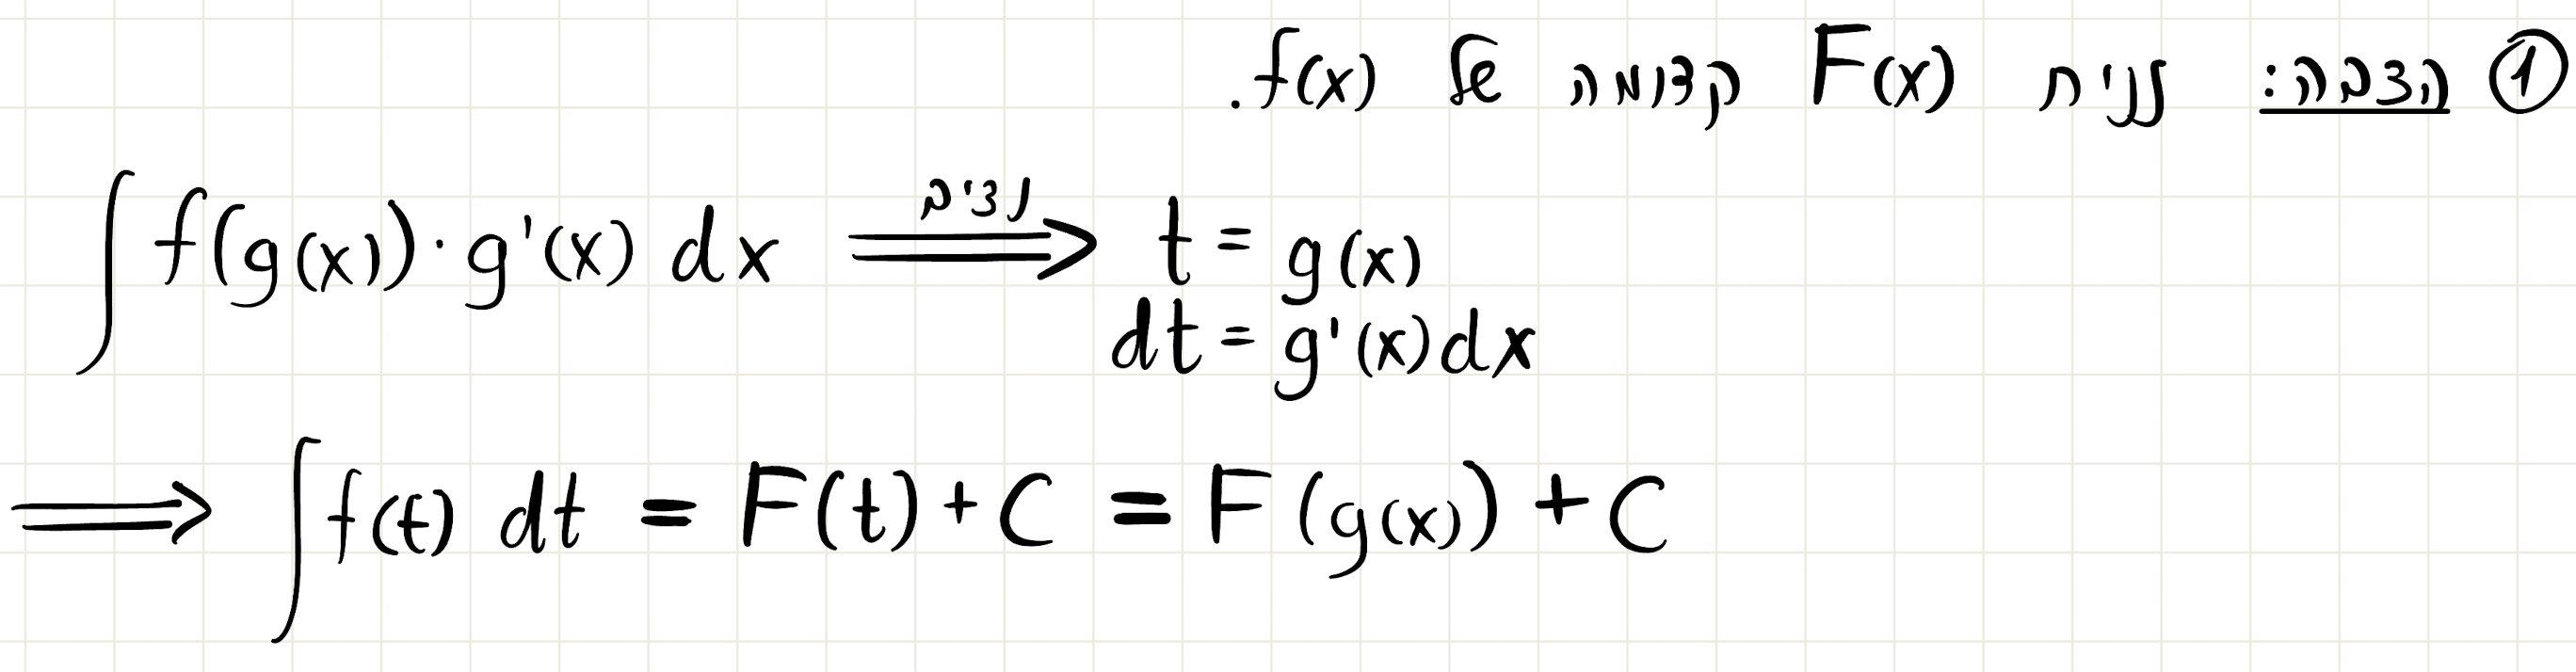 ① הצבה: נניח F(x) קדומה של f(x).
∫ f(g(x))·g'(x) dx ⟹ נציב t = g(x)
dt = g'(x)dx
⟹ ∫ f(t) dt = F(t) + C = F(g(x)) + C